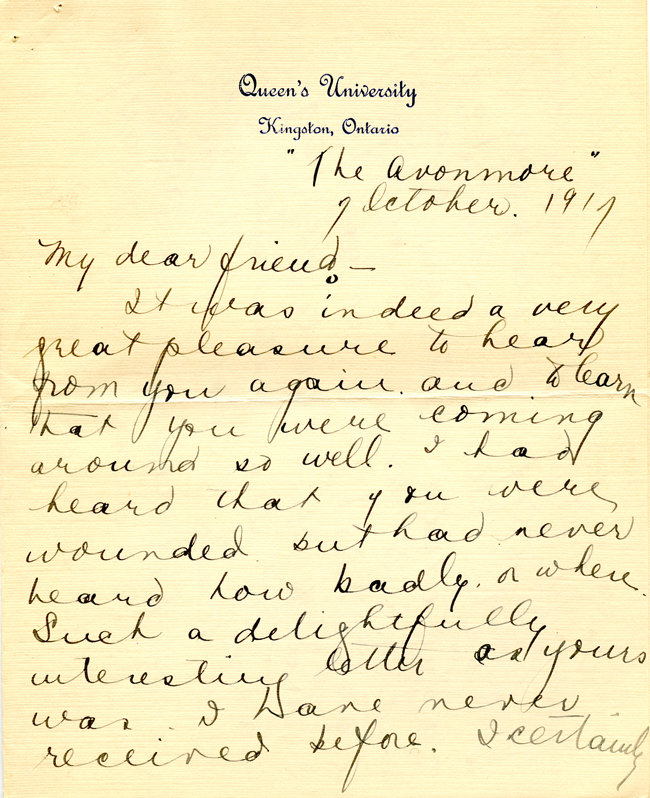 Queen's University
Kingston, Ontario
"The Avonmore"
7 October. 1917
My dear friend,—
It was indeed a very
great pleasure to hear
from you again. and to learn
that you were coming
around so well. I had
heard that you were
wounded but had never
heard how badly. or where.
Such a delightfully
interesting letter as yours
was. I have never
received before. I certainly